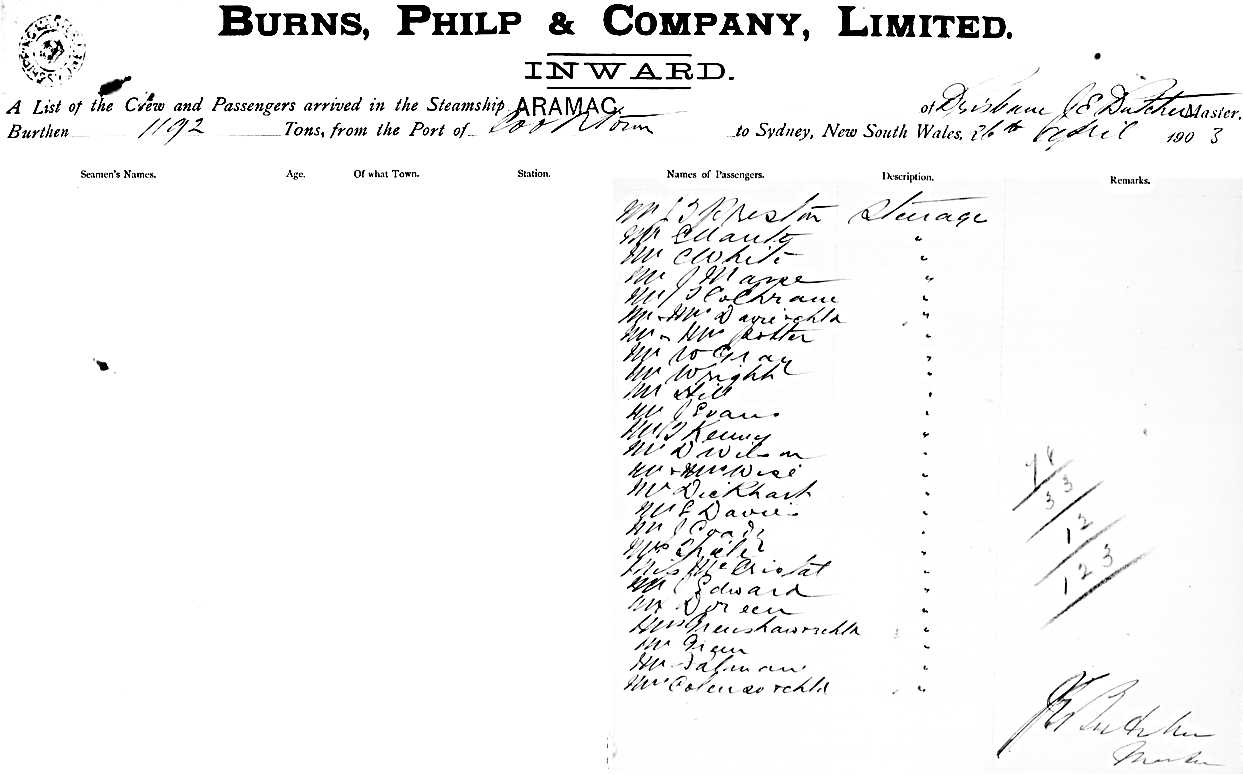 BURNS, PHILP & COMPANY, LIMITED.
INWARD.
A List of the Crew and Passengers arrived in the Steamship ARAMAC of Brisbane J E Butcher Master,
Burthen 1192 Tons, from the Port of Cooktown to Sydney, New South Wales, 26th April 1903
Seamen's Names. Age. Of what Town. Station. Names of Passengers. Description. Remarks.
Mr Preston Steerage
Mr "
Mr C White "
Mr J "
Mr Cochrane "
Mr & Mrs Davie & chld "
Mr & Mrs Potter "
Mr W Gray "
Mr Wright "
Mr Hill "
Mr J Evans "
Mr Kenny "
Mr D Wilson "
Mr & Mrs Wise "
Mr Dickhart "
Davies "
Mr J "
"
Miss "
Mr J Edward "
Doreen "
Mrs Crenshaw & chld "
Mr "
Mr "
Colenso & chld "
78
33
12
123
Butcher
Master